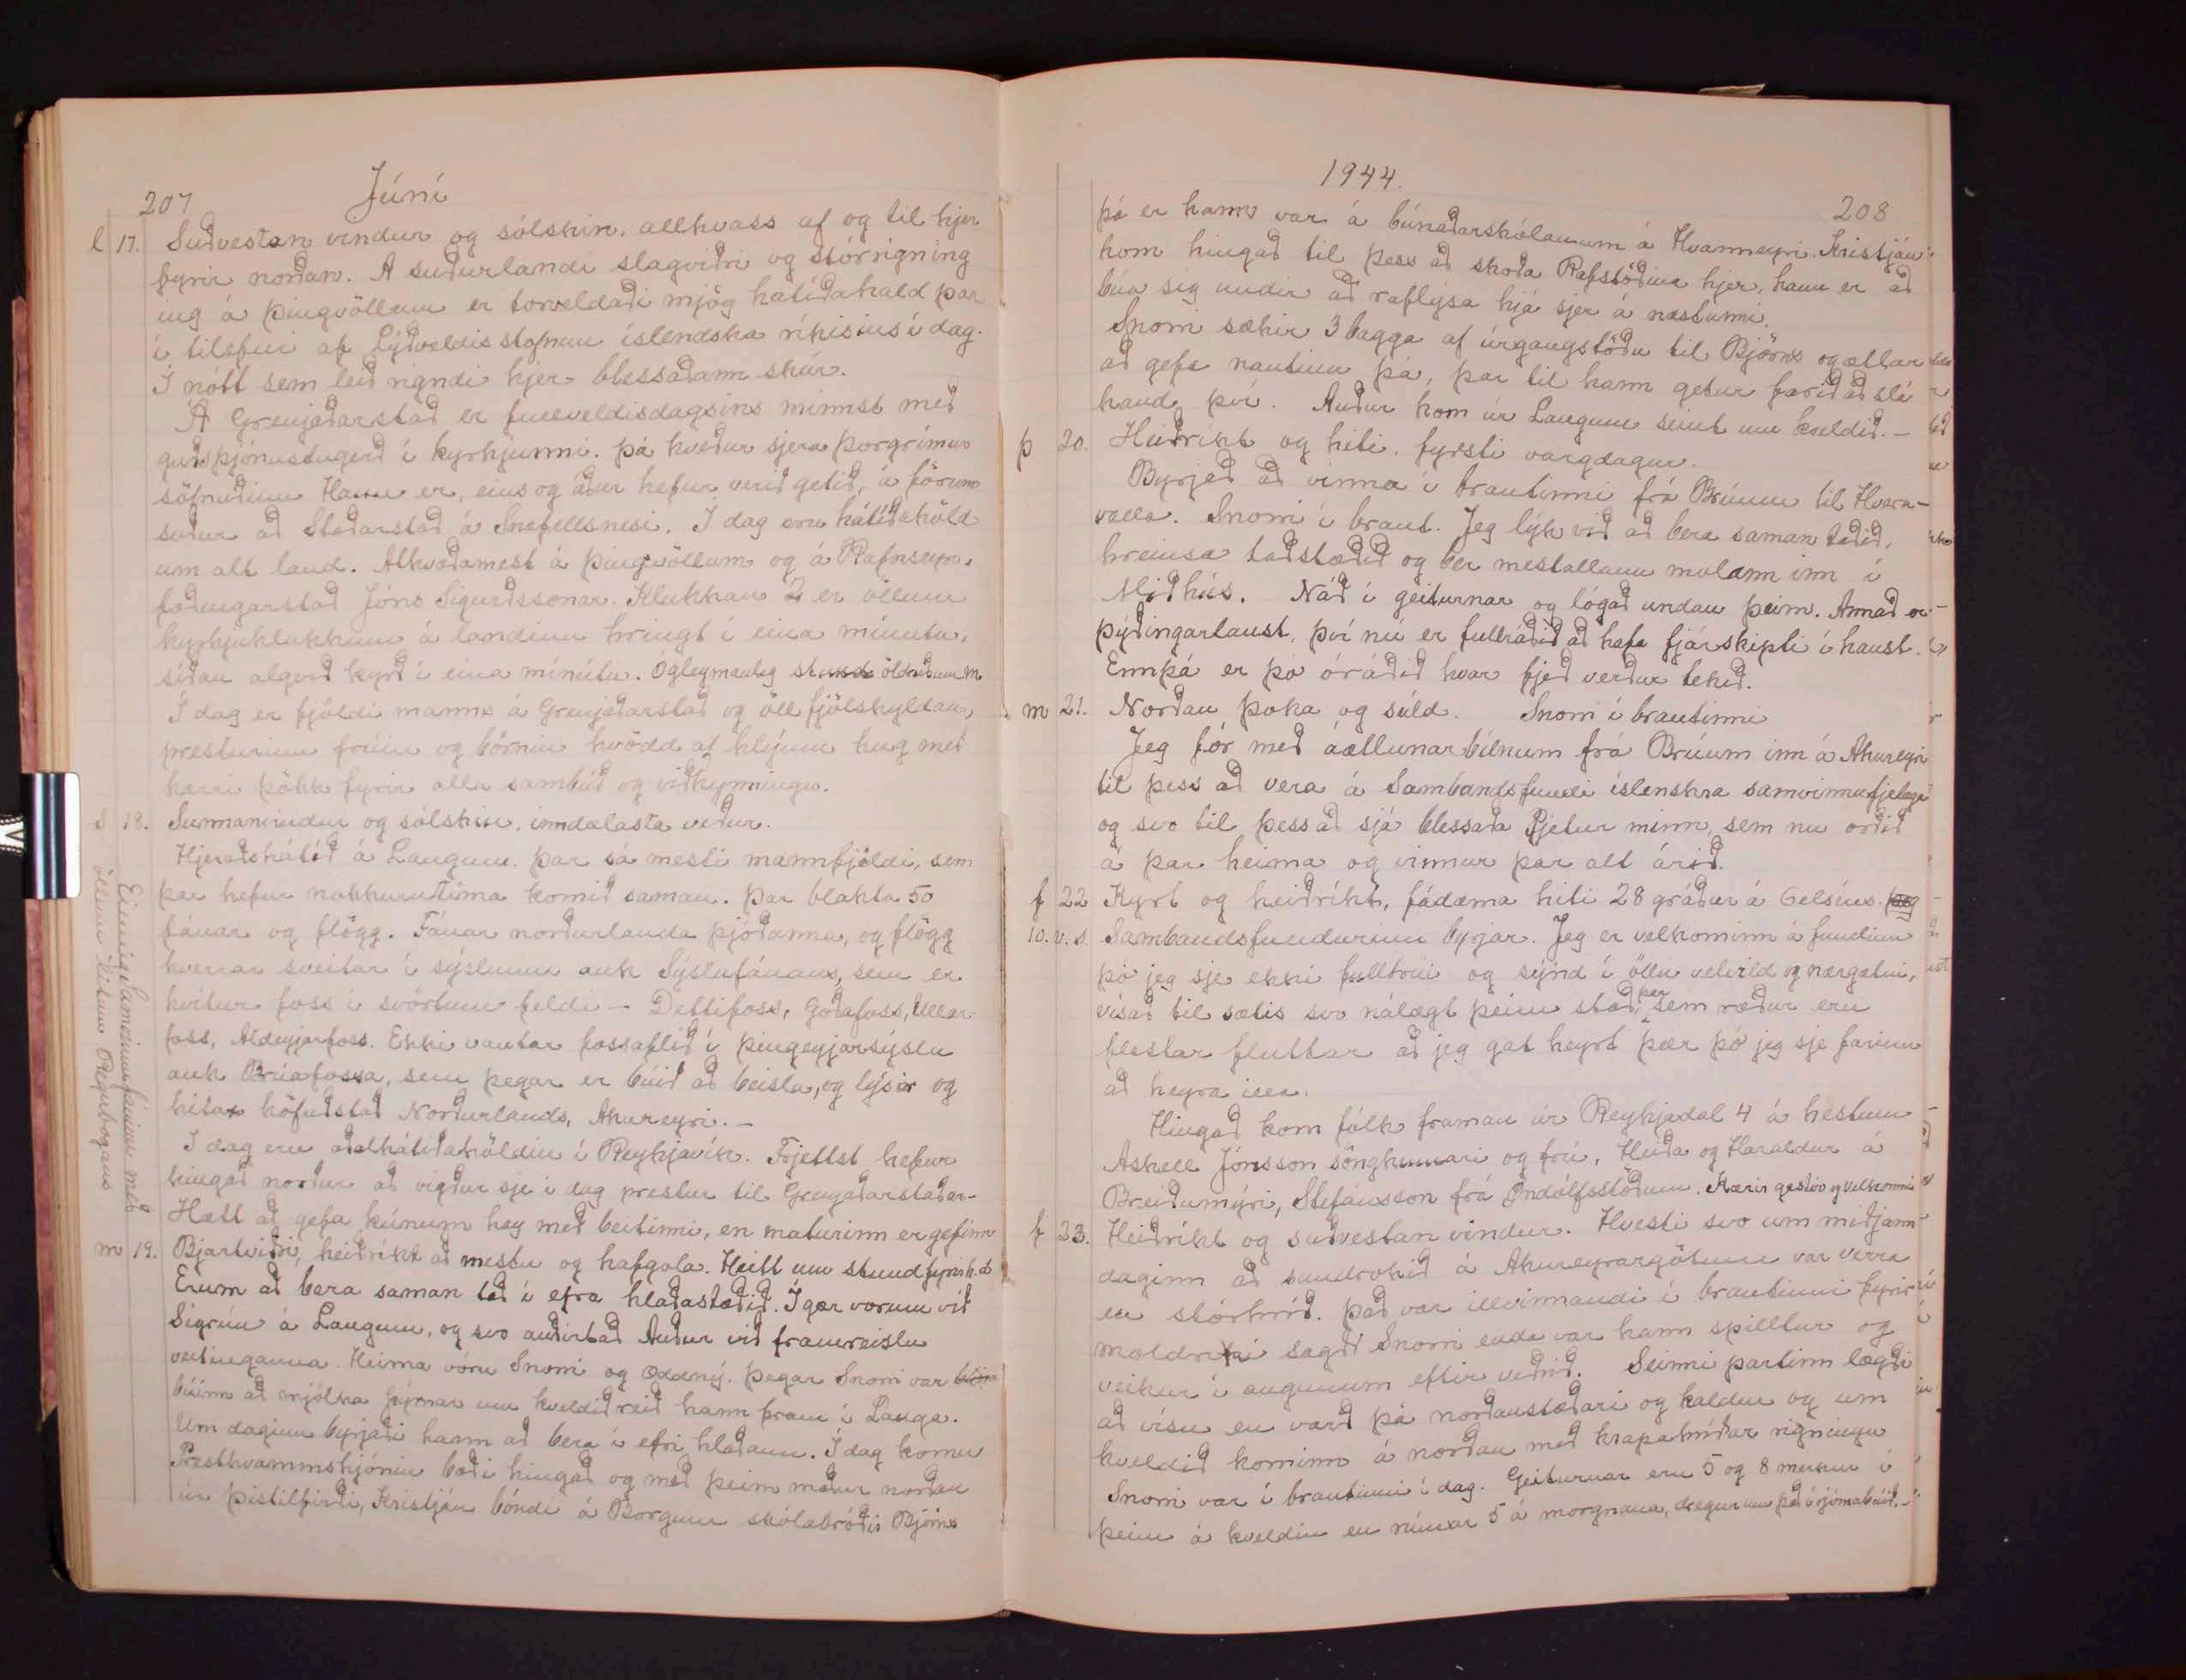 207 Júní
l 17. Suðvestan vindur og sólskin, allhvass af og til hjer
fyrir norðan. Á suðurlandi slagviðri og stórrigning
mg á Þingvöllum er torveldaði mjög hátíðahald þar
í tilefni af Lýðveldisstofnun íslendska ríkisins í dag.
Í nótt sem leið rigndi hjer blessaðann skúr.
Á Grenjaðarstað er fullveldisdagsins minnst með
guðsþjónustugerð í kyrkjunni. Þá kveður sjera Þorgrímur
söfnuðinn Hann er, eins og áður hefur verið getið, á förum
suður að Staðarstað á Snæfellsnesi. Í dag eru hátíðahöld
um alt land. Allhvaðamest á Þingvöllum og á Rafnseyri,
fæðingarstað Jóns Sigurðssonar. Klukkan 2 er öllum
kyrkjuklukkum á landinu hringt í eina mínutu,
síðan algerð kyrð í eina mínútu. Ógleymanleg stund
Í dag er fjöldi manns á Grenjaðarstað og öll fjölskyldan,
presturinn frúin og börnin kvödd af hlýjum hug með
kærri þökk fyrir alla sambúð og viðkynningu.
S 18. Sunnanvindur og sólskin, inndælasta veður.
Hjeraðshátíð á Laugum. Þar sá mesti mannfjöldi, sem
þar hefur nokkurntíma komið saman. Þar blakta 50
fánar og flögg. Fánar norðurlanda þjóðanna, og flögg
hverrar sveitar í sýslunni auk Sýslufánans, sem er
hvítur foss í svörtum feldi - Dettifoss, Goðafoss, Ullar-
foss, Aldeyjarfoss. Ekki vantar fossaflið í Þingeyjarsýslu
auk Brúafossa, sem þegar er búið að beisla, og lýsir og
hitar höfuðstað Norðurlands, Akureyri. -
Í dag eru aðalhátíðahöldin í Reykjavík. Frjettst hefur
hingað norður að vígður sje í dag prestur til Grenjaðarstaðar-
Hætt að gefa kúnum hey með beitinni, en maturinn er gefinn
m 19. Bjartviðri, heiðríkt að mestu og hafgola. Heitt um stund fyrir h.d.
Erum að bera saman tað í efra hlaðastæðið. Í gær vorum við
Sigrún á Laugum, og svo auðvitað Auður við framreislu
veitinganna. Heima vóru Snorri og Oddný. Þegar Snorri var
búinn að mjólka kýrnar um kveldið reið hann fram í Lauga.
Um daginn byrjaði hann að bera í efri hlaðann. Í dag komu
Presthvammshjónin bæði hingað og með þeim maður norðan
úr Þistilfirði, Kristján bóndi á Borgum skólabróðir Björns
Einnig Samvinnufáninn með
öllum litum Regnbogans
1944.
208
þá er hann var á búnaðarskólanum á Hvanneyri. Kristján
kom hingað til þess að skoða Rafstöðina hjer, hann er að
búa sig undir að raflýsa hjá sjer á næstunni.
Snorri sækir 3 bagga af úrgangstöðu til Björns og ætlar
að gefa nautinu þá, þar til hann getur farið að slá
handa því. Auður kom úr Laugum seint um kveldið. -
þ 20. Heiðríkt og hiti. fyrsti vargdagur.
Byrjað að vinna í brautinni frá Brúum til Hvera-
valla. Snorri í braut. Jeg lýk við að bera saman taðið,
hreinsa taðstæðið og ber mestallann molann inn í
Miðhús. Náð í geiturnar og lógað undan þeim. Annað er
þýðingarlaust, því nú er fullráðið að hafa fjárskipti í haust.
Ennþá er þó óráðið hvar fjeð verður tekið.
m 21. Norðan þoka og súld. Snorri í brautinni
Jeg fór með áætlunarbílnum frá Brúum inn á Akureyri
til þess að vera á Sambandsfundi íslenskra samvinnufjelaga
og svo til þess að sjá blessaða Pjetur minn, sem nu orðið
á þar heima og vinnur þar alt árið.
f 22 Kyrt og heiðríkt, fádæma hiti 28 gráður á Celsíus.
10. v. s. Sambandsfundurinn byrjar. Jeg er velkominn á fundinn
þó jeg sje ekki fulltrúi og sýnd í öllu velvild og nærgætni,
vísað til sætis svo nálægt þeim stað, þar sem ræður eru
flestar fluttar að jeg gat heyrt þær þó jeg sje farinn
að heyra illa.
Hingað kom fólk framan úr Reykjadal 4 á hestum
Áskell Jónsson söngkennari og frú, Heiða og Haraldur á
Breiðumýri, Stefánsson frá Öndólfsstöðum. Kærir gestir og velkomnir
f 23. Heiðríkt og suðvestan vindur. Hvesti svo um miðjann
daginn að sandrokið á Akureyrargötum var verra
en stórhríð. Það var illvinnandi í brautinni fyrir
moldroki sagði Snorri enda var hann spilltur og
veikur í augunum eftir veðrið. Seinni partinn lægði
að vísu en varð þá norðaustlægari og kaldur og um
kveldið kominn á norðan með krapahríðar rigningu
Snorri var í brautinni í dag. Geiturnar eru 5 og 8 merkur í
þeim á kveldin en rúmar 5 á morgnana, dregur um það í rjómabúið. -